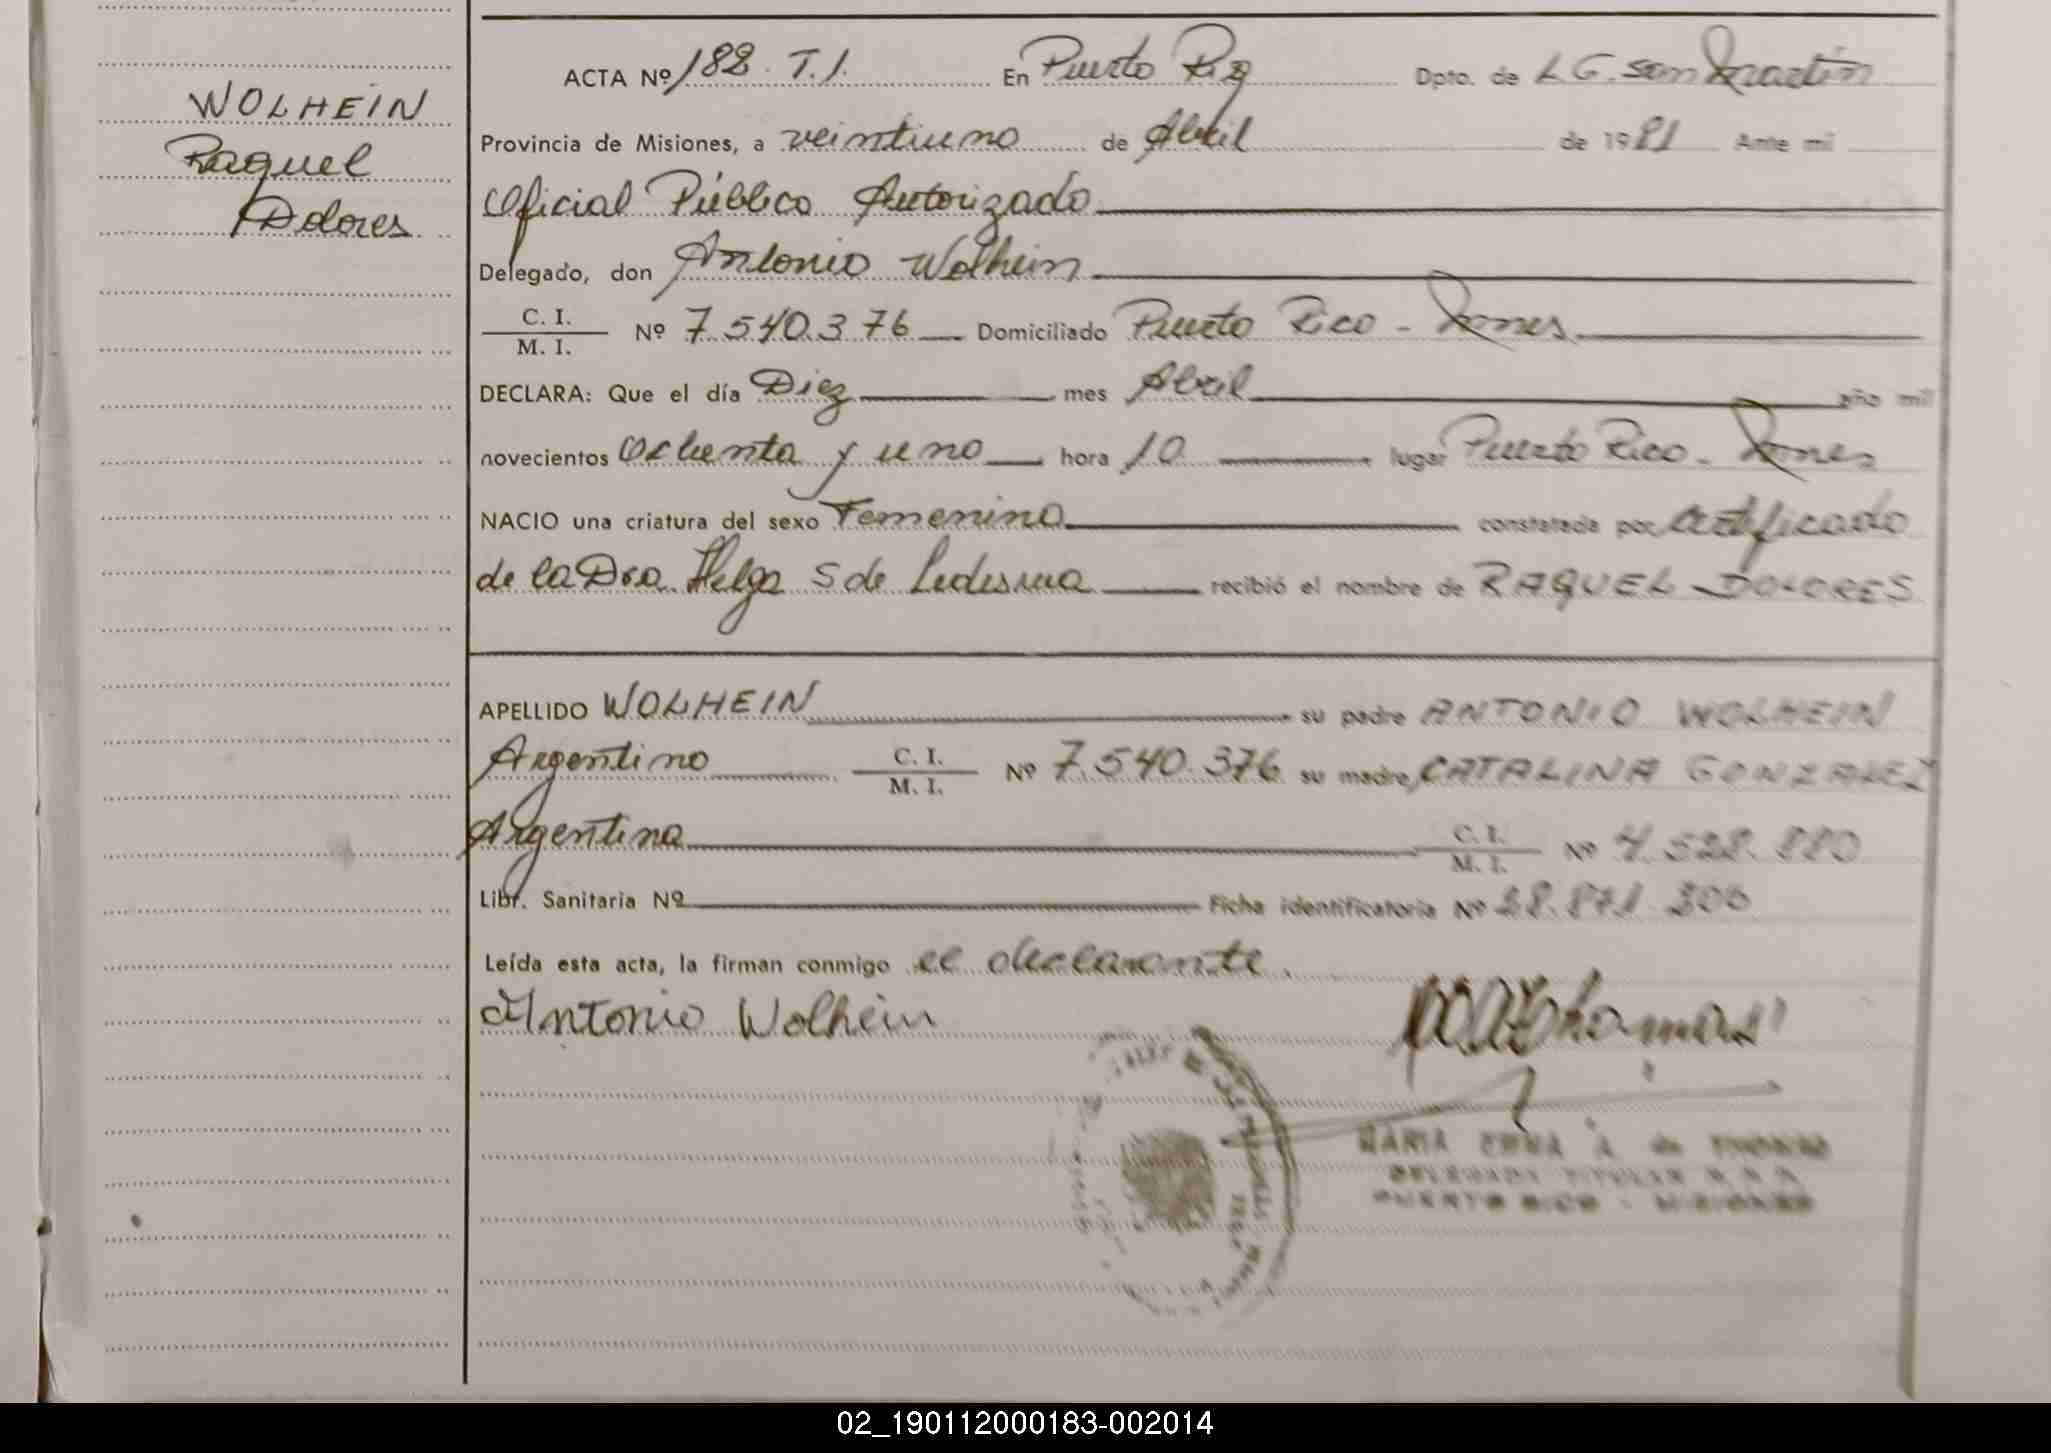 WOLHEIN
Raquel
Dolores
ACTA Nº 188 T.I. En Puerto Rico Dpto. de L.G. San Martín
Provincia de Misiones, a veintiuno de Abril de 1981 Ante mi
Oficial Público Autorizado
Delegado, don Antonio Wolhein
C. I.
M. I. Nº 7.540.376 Domiciliado Puerto Rico - Mnes
DECLARA: Que el día Diez mes Abril año mil
novecientos Ochenta y uno hora 10 lugar Puerto Rico - Mnes
NACIO una criatura del sexo Femenino constatada por certificado
de la Dra. Helga S de Ledesma recibió el nombre de RAQUEL DOLORES
APELLIDO WOLHEIN su padre ANTONIO WOLHEIN
Argentino C. I. M. I. Nº 7.540.376 su madre, CATALINA GONZALEZ
Argentina C. I. M. I. Nº 4.528.880
Libr. Sanitaria Nº Ficha identificatoria Nº 28.871.306
Leída esta acta, la firman conmigo el declarante.
Antonio Wolhein
MARIA A. de
DELEGADA TITULAR
PUERTO RICO - MISIONES
02_190112000183-002014